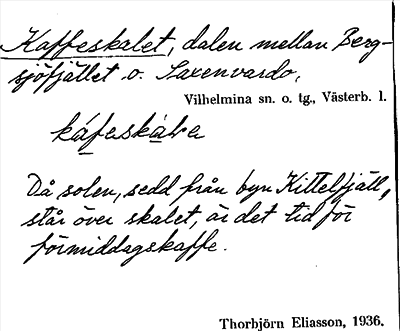 Kaffeskalet, dalen mellan Berg-
sjöfjället o. Saxenvardo,
Vilhelmina sn. o. tg., Västerb. l.
Då solen, sedd från byn Kittelfjäll,
står över skalet, är det tid för
förmiddagskaffe.
Thorbjörn Eliasson, 1936.